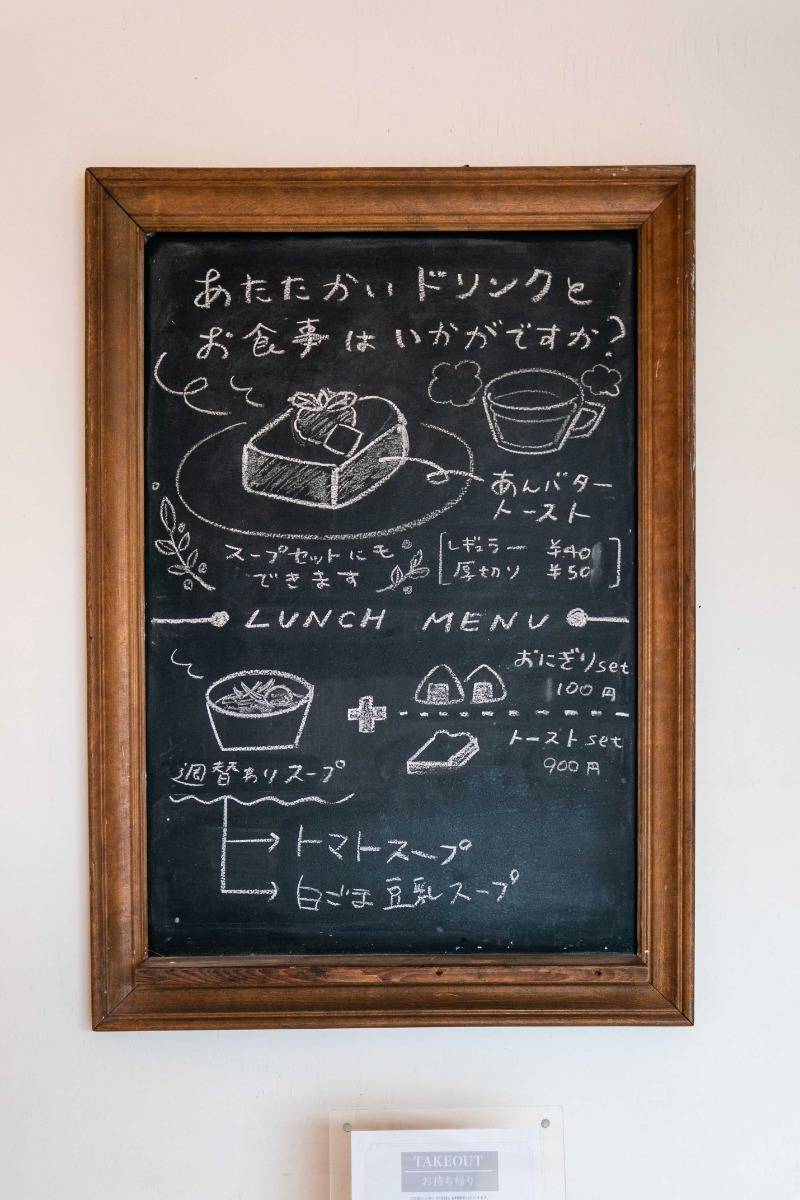 あたたかいドリンクと
お食事はいかがですか?
あんバター
トースト
スープセットにも
できます
レギュラー ¥40
厚切り ¥50
LUNCH MENU
おにぎりset
100円
トーストset
900円
週替わりスープ
トマトスープ
白ごま豆乳スープ
TAKEOUT
お持ち帰り